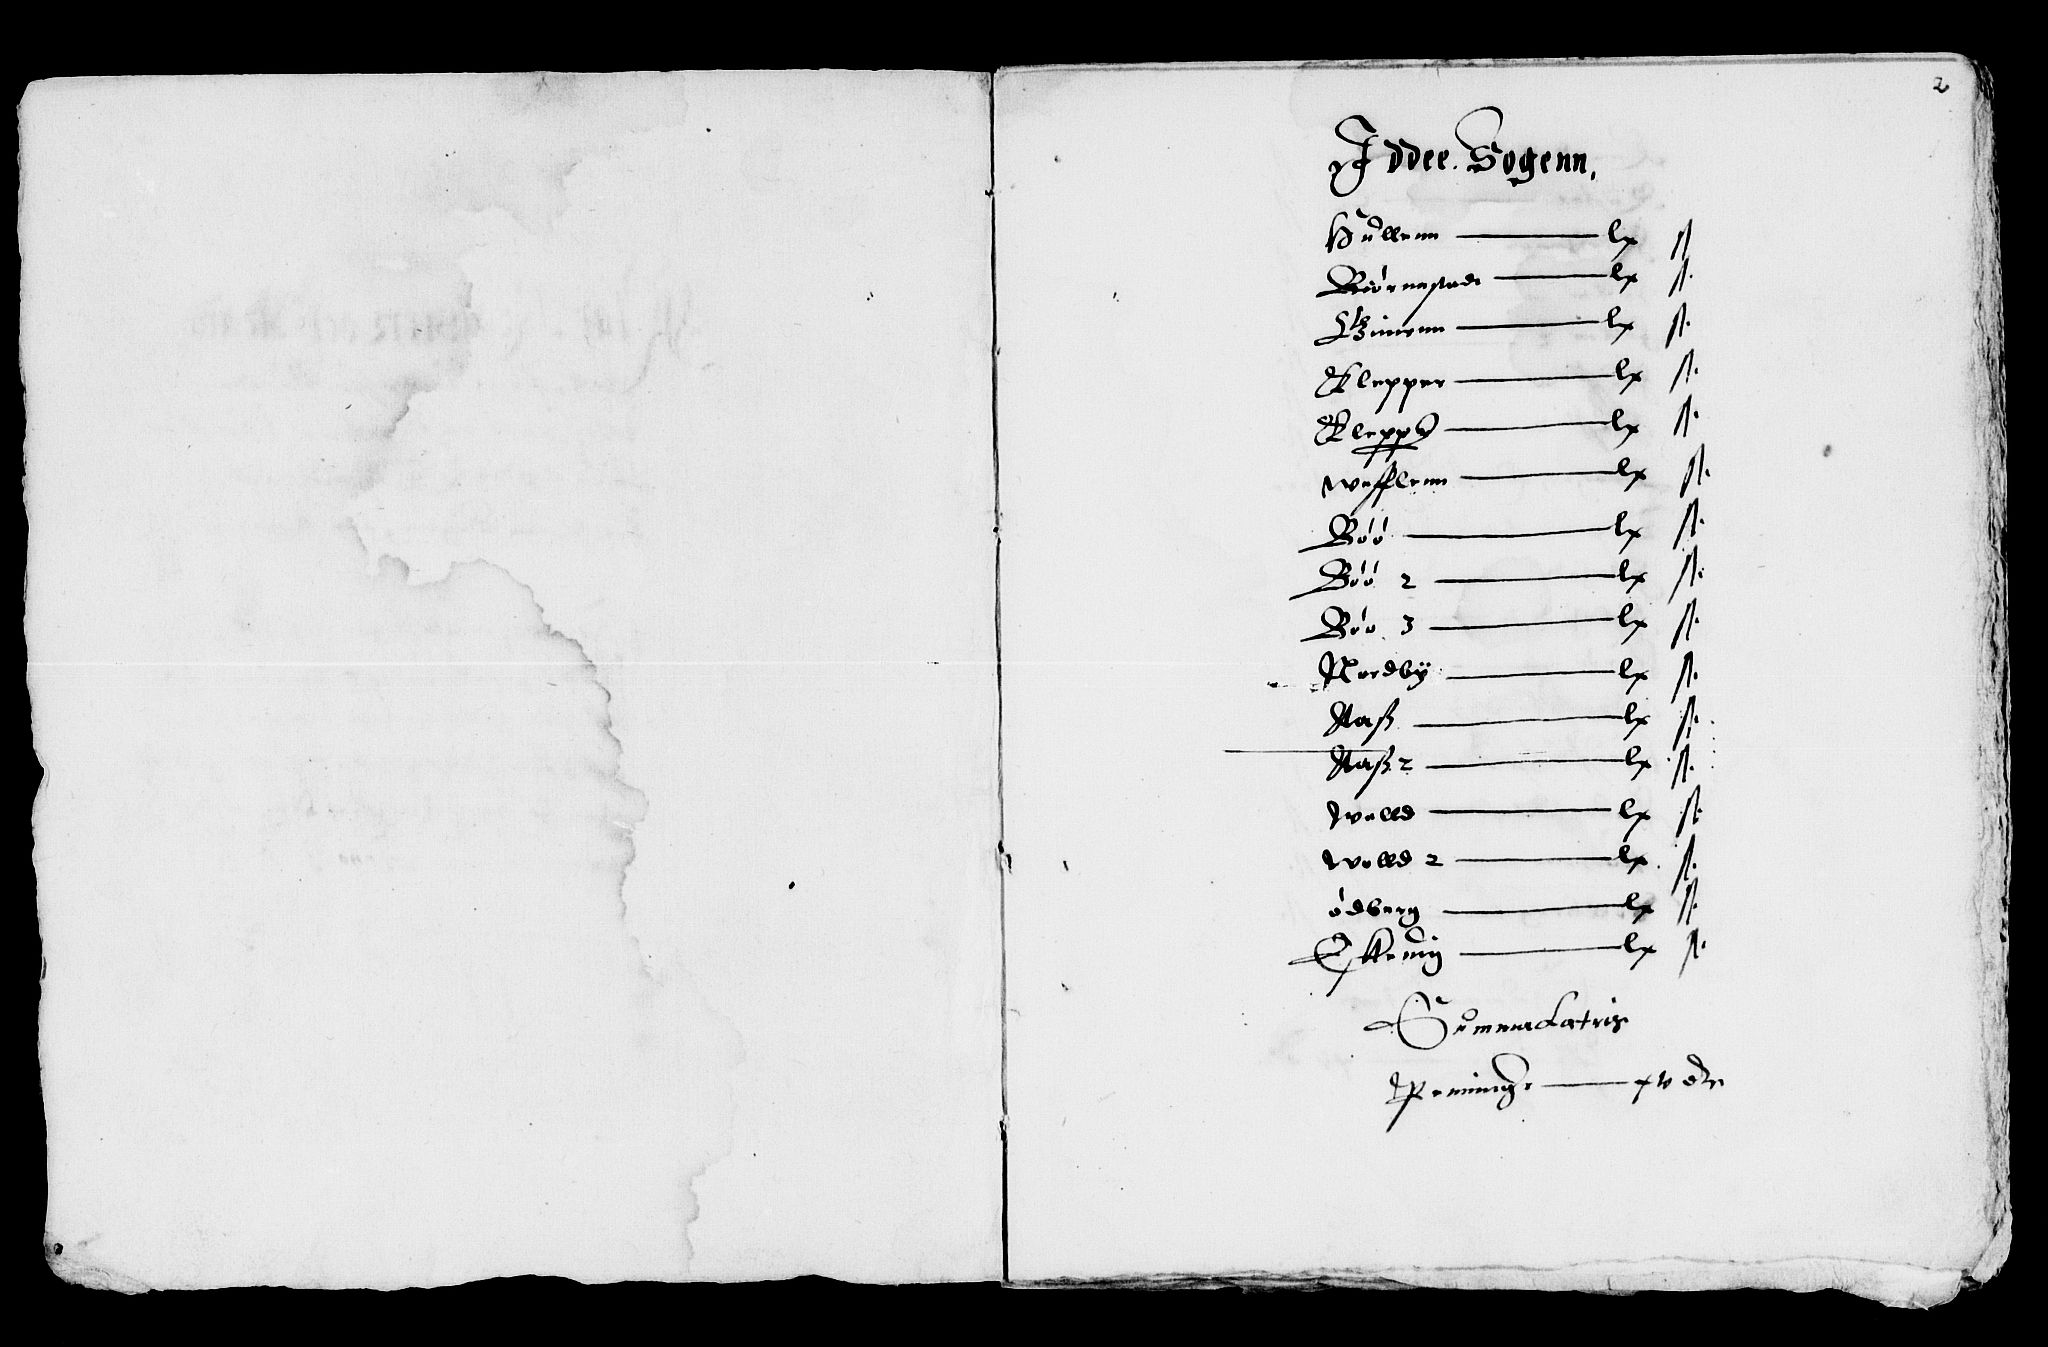 2
Iddee Sogenn,
Hullenn — lx ß
Biörnnstadt — lx ß.
Skinnenn — lx ß.
Klepper — lx ß.
Klepper — lx ß.
Wefflenn — lx ß.
Böö — lx ß.
Böö 2 — lx ß.
Böö 3 — lx ß.
Nordby — lx ß.
Aaß — lx ß.
Aaß 2 — lx ß.
Wolld — lx ß.
Wolld 2 — lx ß.
ödberg — lx ß.
Eskeuig — lx ß.
Summa Latris
Penninge — xv dlr